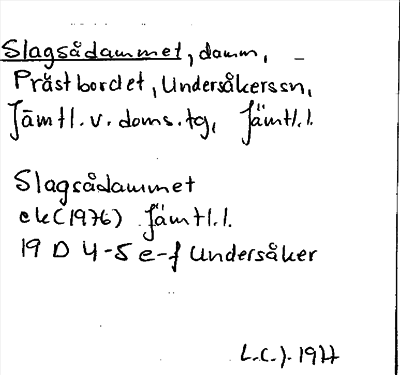 Slagsådammet, damm, –
Prästbordet, Undersåkerssn,
Jämtl.v.doms.tg, Jämtl.l.
Slagsådammet
ek(1976) Jämtl.l.
19 D 4-5 e-f Undersåker
L.C.J. 1977